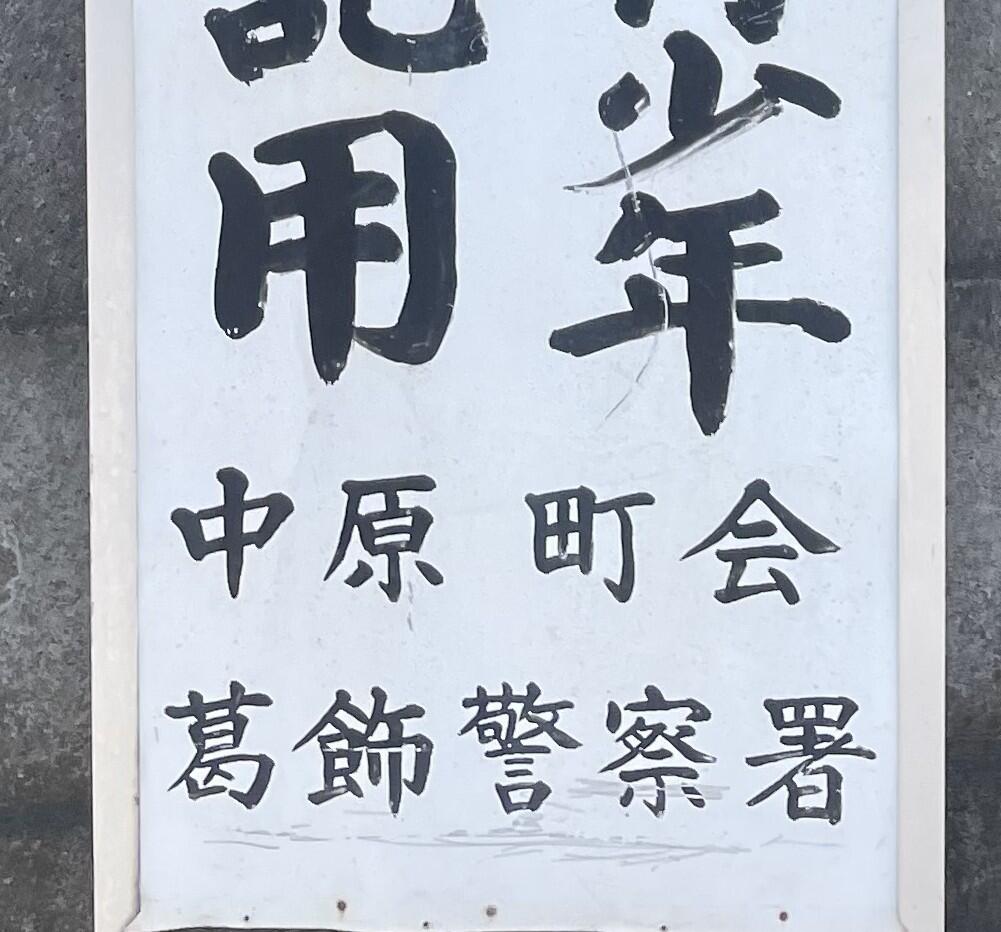 少年
用
中原町会
葛飾警察署